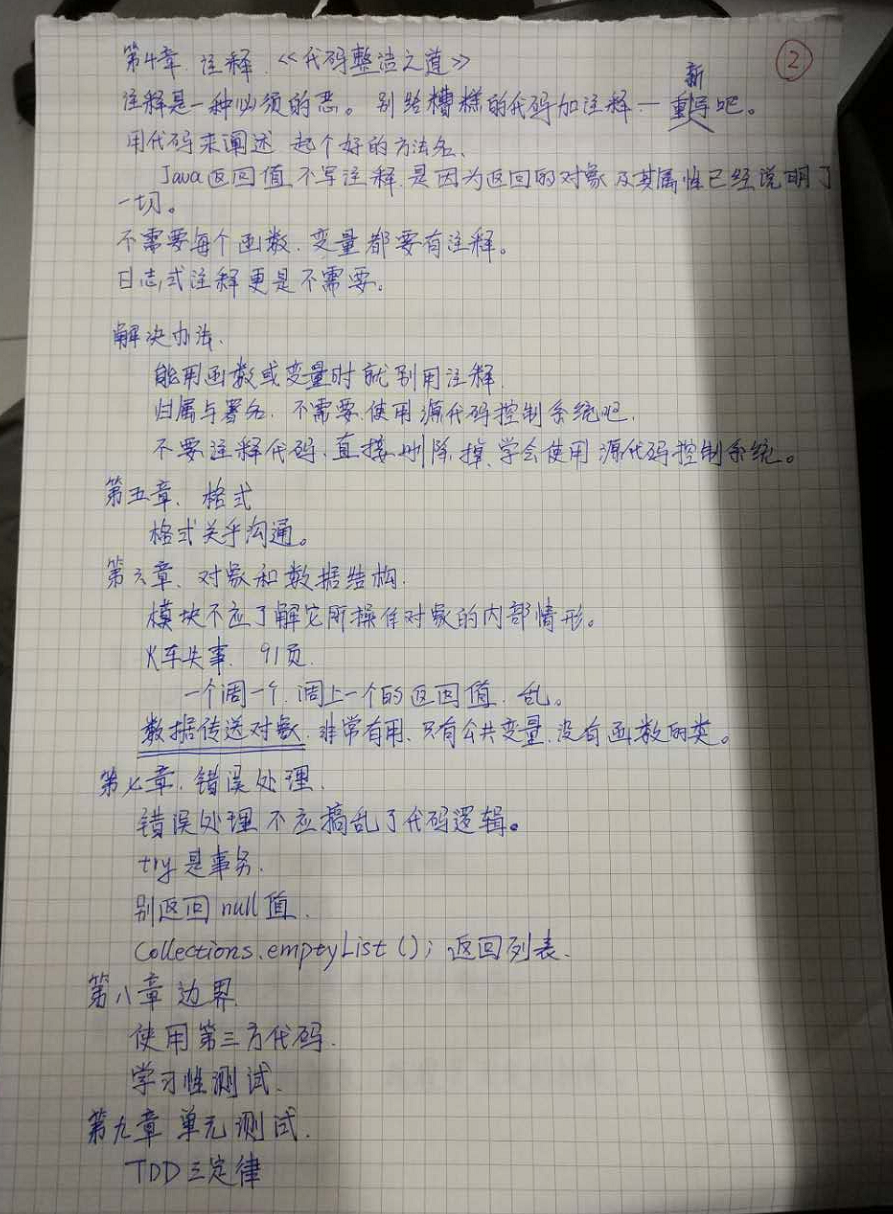 ②
第4章. 注释. 《代码整洁之道》
注释是一种必须的恶。别给糟糕的代码加注释一重新写吧。
用代码来阐述. 起个好的方法名.
Java返回值 不写注释. 是因为返回的对象及其属性已经说明了
一切。
不需要每个函数. 变量都要有注释。
日志式注释更是不需要。
解决办法.
能用函数或变量时就别用注释.
归属与署名. 不需要. 使用源代码控制系统吧.
不要注释代码. 直接删除掉. 学会使用源代码控制系统。
第五章. 格式
格式关乎沟通。
第六章. 对象和数据结构.
模块不应了解它所操作对象的内部情形。
火车失事. 91页.
一个调一个. 调上一个的返回值. 乱。
数据传送对象. 非常有用. 只有公共变量. 没有函数的类。
第七章. 错误处理.
错误处理不应搞乱了代码逻辑。
try 是事务.
别返回null值.
Collections.emptyList(); 返回列表.
第八章 边界.
使用第三方代码.
学习性测试.
第九章 单元测试.
TDD三定律